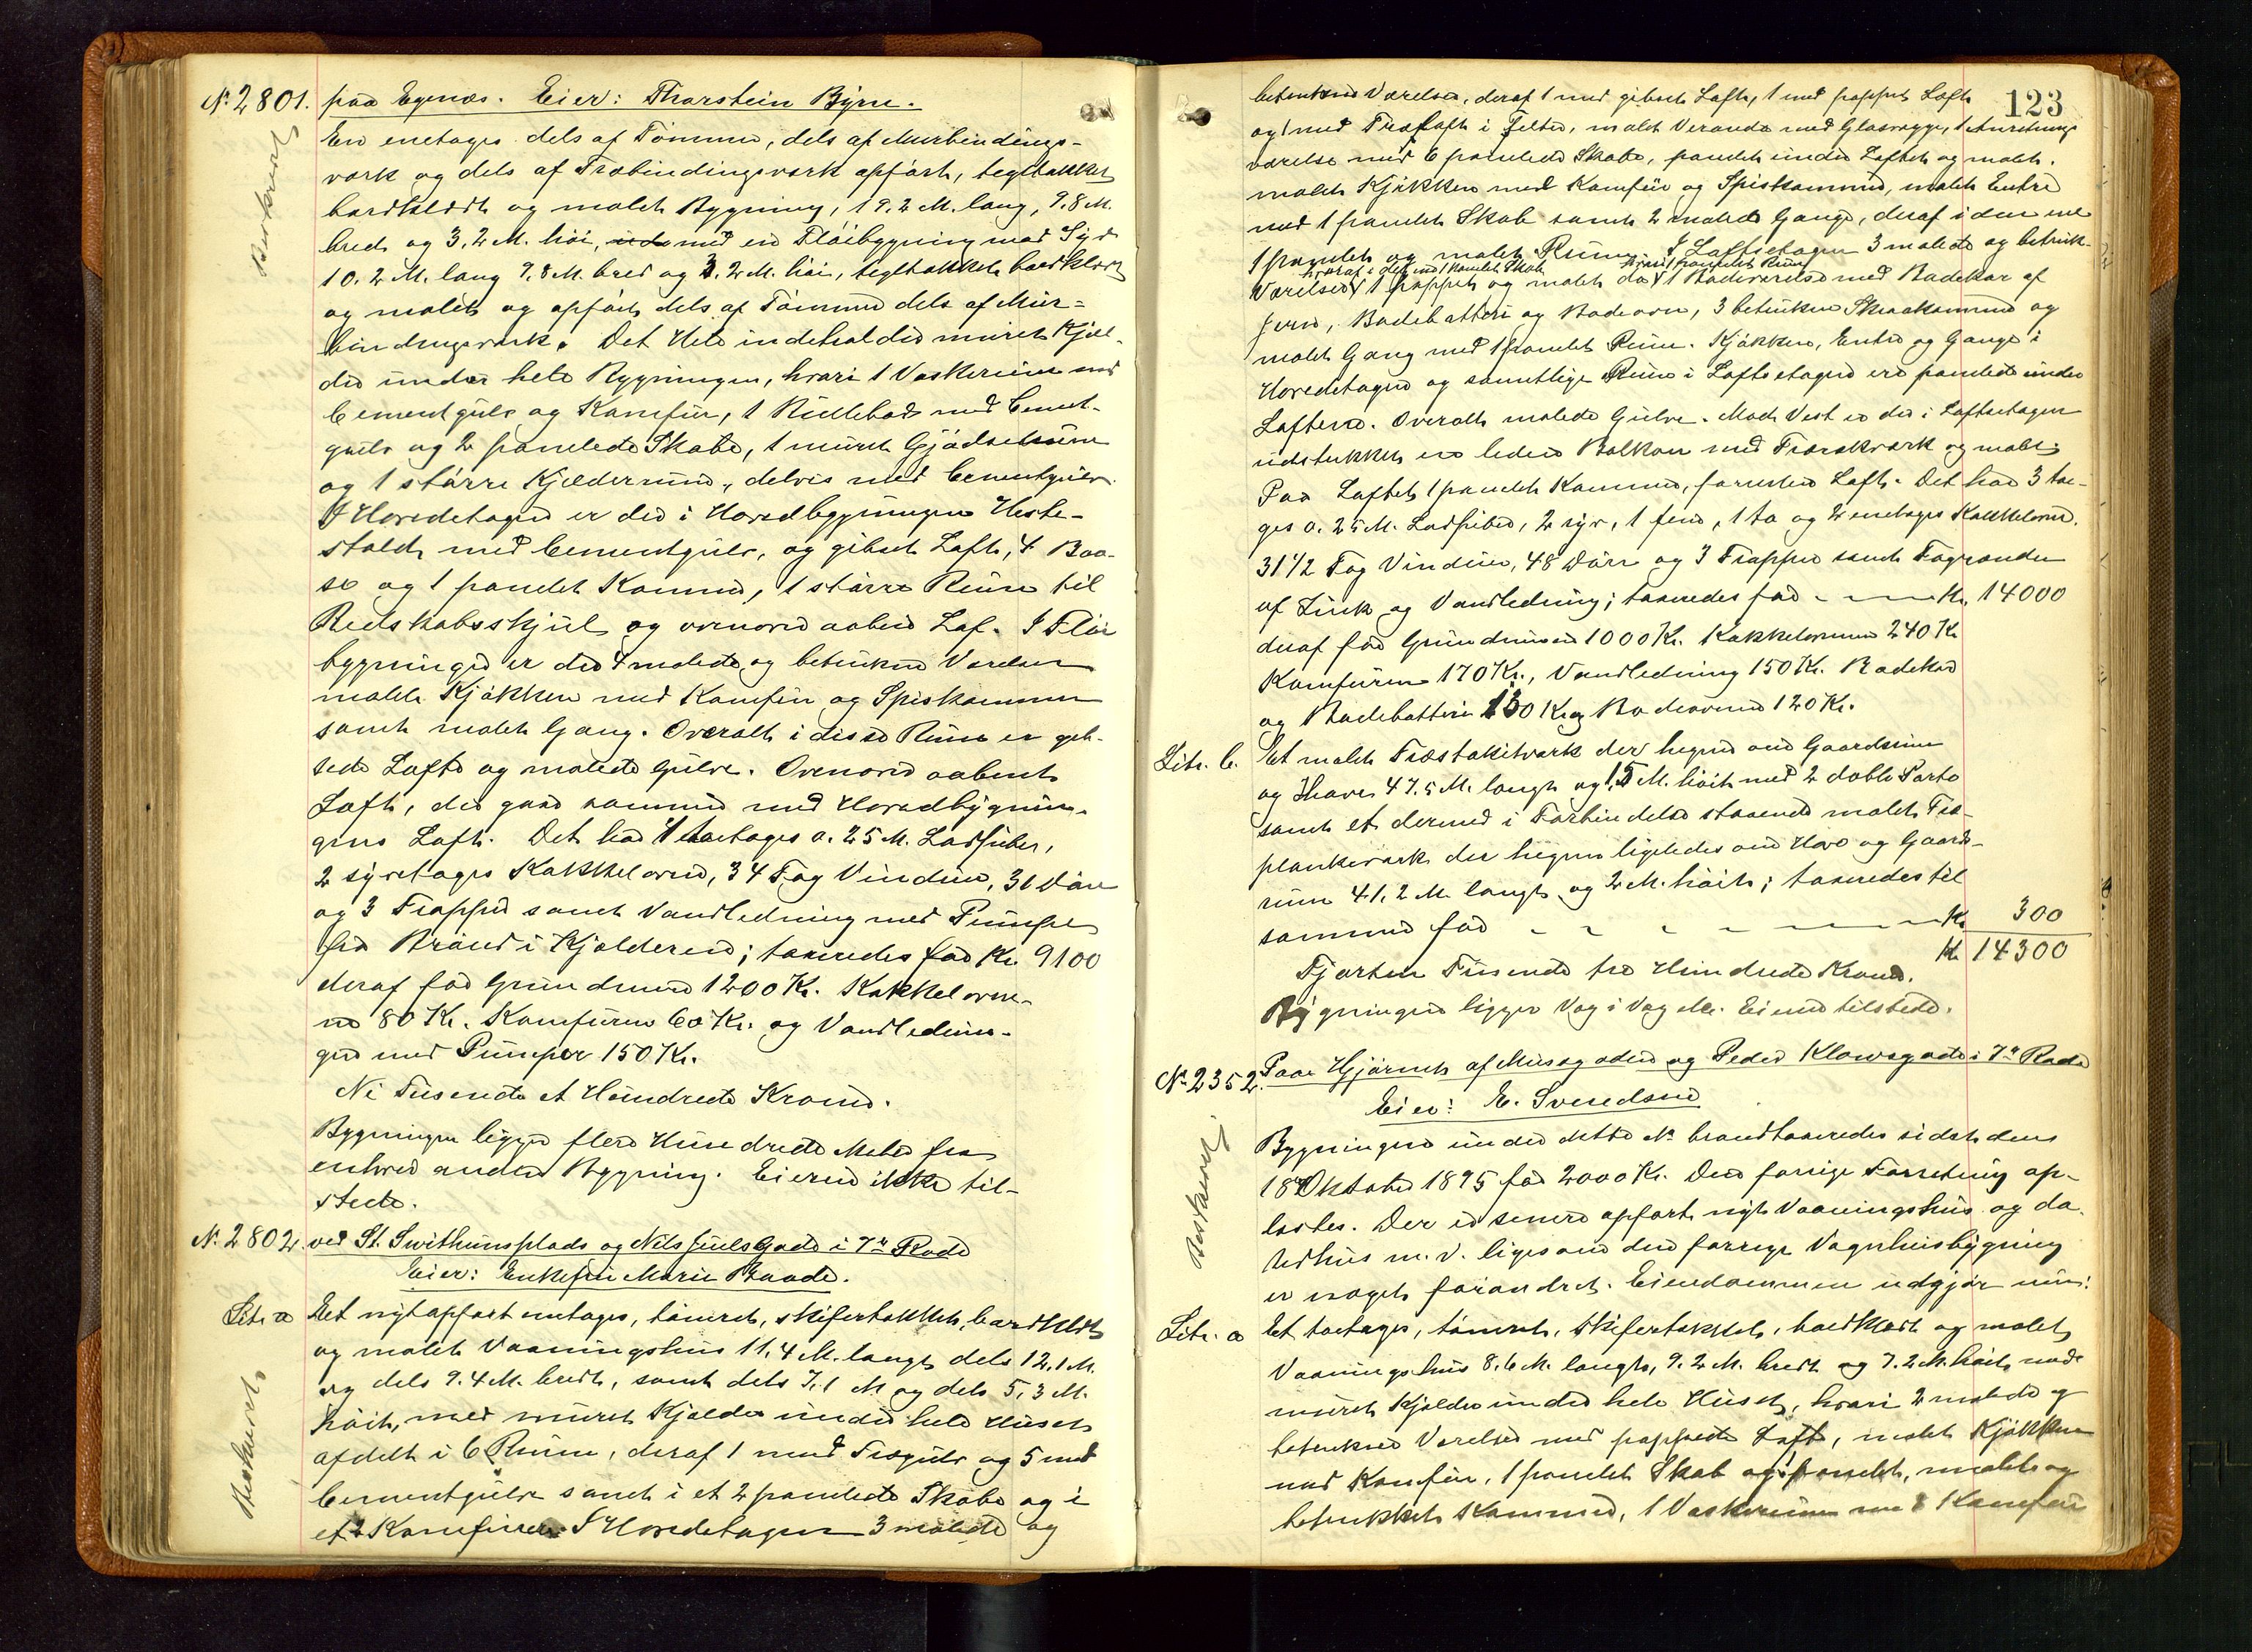 No 2801. paa Egenæs. Eier: Thorstein Bryne.
Beskrevet
En enetages dels af Tømmer, dels af Murbindings-
værk og dels af Træbindingsværk opført, tegltækket
bordklædt og malet Bygning, 19.2 M. lang, 9.8 M.
bred og 3.2 M. høi, med en Fløibygning mod Syd
10.2 M. lang 9.8 M. bred og 3.2 M. høi, tegltækket bordklædt
og malet og opført dels af Tømmer dels af Mur-
bindingsværk. Det Hele indeholder muret Kjæl-
der under hele Bygningen, hvori 1 Vaskerum med
Cementgulv og Komfur, 1 Rullebod med Cement-
gulv og 2 panelede Skabe, 1 muret Gjødselrum
og 1 større Kjælderrum, delvis med Cementgulv.
I Hovedetagen er der i Hovedbygningen Heste-
stald med Cementgulv, og gibset Loft, 4 Baa-
se og 1 panelet Kammer, 1 større Rum til
Redskabsskjul og ovenover aaben Laf. I Fløi
bygningen er der 4 malede og betrukne Værelser
malet Kjøkken med Komfur og Spiskammer
samt malet Gang. Overalt i disse Rum er gib-
sede Lofte og malede Gulve. Ovenover aabent
Loft, der gaar sammen med Hovedbygnin-
gens Loft. Det har 1 toetages a. 25 M. Ladpiber,
2 syvetages Kakkelovne, 34 Fag Vinduer, 31 Døre
og 3 Trapper samt Vandledning med Pumpe
fra Brønd i Kjælderen; taxeredes for Kr. 9100
deraf for Grundmuren 1200 Kr. Kakkelovne-
ne 80 Kr. Komfuren 60 Kr. og Vandlednin-
gen med Pumper 150 Kr.
Ni Tusende et Hundrede Kroner.
Bygningen ligger flere Hundrede Meter fra
enhver anden Bygning. Eieren ikke til-
stede.
No 2802. ved St. Swithunsplads og Nils Juels Gade i 7de Rode
Eier: Enkefru Marie Baade.
Beskrevet
Litr. a Et nyt opført enetages, tømret, skifertækket, bordklædt
og malet Vaaningshus 11.4 M. langt dels 12.1 M.
og dels 9.4 M. bredt, samt dels 7.1 M og dels 5.3 M.
høit, med muret Kjælder under hele Huset
afdelt i 6 Rum, deraf 1 med Trægulv og 5 med
Cementgulv samt i et 2 panelede Skabe og i
et 2 Komfurer. I Hovedetagen 3 malede og
123
betrukne Værelser, deraf 1 med gibset Loft, 1 med pappet Loft
og 1 med Træloft i Felter, malet Veranda med Glasvægge, 1 Anretnings
værelse med 6 panelede Skabe, panelet under Loftet og malet.
malet Kjøkken med Komfur og Spiskammer, malet Entré
med 1 panelet Skab samt 2 malede Gange, deraf i den ene
1 panelet og malet Rum. I Loftsetagen 3 malede og betrukne
hvoraf i det ene 1 panelet Skab hvori 1 panelet Rum
Værelser, 1 pappet og malet do, 1 Badeværelse med Badekar af
Jern, Badebatteri og Badeovn, 3 betrukne Skraakammere og
malet Gang med 1 panelet Rum. Kjøkken, Entré og Gange i
Hovedetagen og samtlige Rum i Loftsetagen ere panelede under
Loftene. Overalt malede Gulve. Mod Vest er der i Loftsetagen
udstukket en liden Balkon med Træværk og malet.
Paa Loftet 1 panelet Kammer, forresten Loft. Det har 3 toe-
ges a. 25 M. Ladpiber, 2 syv, 1 fem, 1 to og 2 enetages Kakkelovne.
31 1/2 Fag Vinduer, 48 Døre og 3 Trapper samt Tagrender
af Zink og Vandledning; taxeredes for - - - Kr. 14000
deraf for Grundmuren 1000 Kr. Kakkelovnene 240 Kr
Komfurene 170 Kr., Vandledning 150 Kr. Badekar
og Badebatteri 130 Kr. og Badeovnen 120 Kr.
Litr. b. Et malet Træstakitværk der hegner om Gaardsrum
og Have, 47.5 M. langt og 1.5 M. høit med 2 doble Porte
samt et dermed i Forbindelse staaende malet Træ-
plankeværk der hegner ligeledes om Have og Gaards-
rum 41.2 M. langt og 2 M. høit; taxeredes til
sammen for - - - - - Kr 300
Kr 14300
Fjorten Tusende tre Hundrede Kroner.
Bygningen ligger Væg i Væg No. Eieren tilstede.
No 2352. Paa Hjørnet af Musægaden og Peder Klowsgade i 7de Rode
Eier: E. Svendsen
Beskrevet
Bygningen under dette No brandtaxeredes sidst den
18de Oktober 1895 for 2000 Kr. Den forrige Forretning op-
læstes. Der er senere opført nyt Vaaningshus og do.
Udhus m. v. ligesom den forrige Vognhusbygning
er noget forandret. Eiendommen udgjør nu:
Litr. a Et toetages, tømret, skifertækket, bordklædt og malet
Vaaningshus 8.6 M. langt, 9.2 M. bredt og 7.2 M. høit, med
muret Kjælder under hele Huset, hvori 2 malede og
betrukne Værelser med pappede Loft, malet Kjøkken
med Komfur, 1 panelet Skab og panelet, malet og
betrukket Kammer, 1 Vaskerum med Komfur